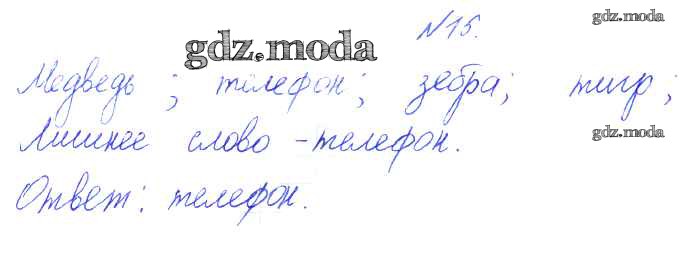 №15. gdz.moda
gdz.moda
Медведь; телефон; зебра; тигр;
Лишнее слово - телефон. gdz.moda
Ответ: телефон.